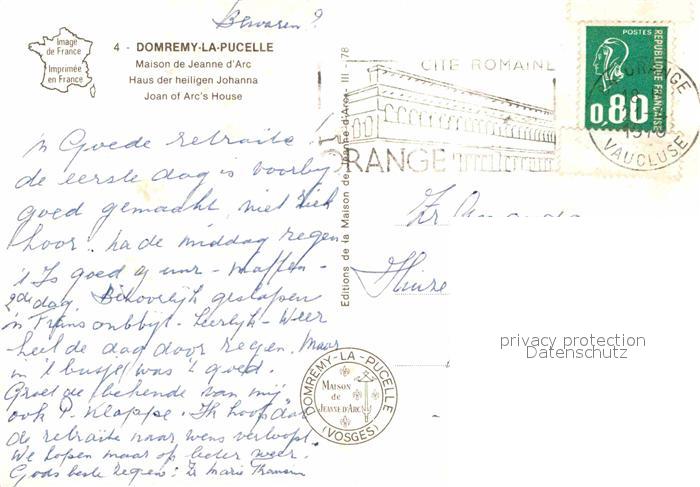 Bewaren?
Image
de France
Imprimée
en France
4 - DOMREMY-LA-PUCELLE
Maison de Jeanne d'Arc
Haus der heiligen Johanna
Joan of Arc's House
'n Goede retraite!
de eerste dag is voorbij
goed gemaakt, niet ziek
hoor. na de middag regen
't Is goed 9 uur - maffen -
2de dag Behoorlijk geslapen
'n Frans ontbijt - heerlijk - Weer
heel de dag door regen. Maar
in 't busje was 't goed.
Groet de bekende van mij
ook P. Klappe. Ik hoop dat
de retraite naar wens verloopt.
We hopen maar op beter weer.
Gods beste zegen: Zr Marie
Editions de la Maison de Jeanne d'Arc - III - 78
CITE ROMAINE
ORANGE
POSTES
REPUBLIQUE FRANÇAISE
0,80
ORANGE
VAUCLUSE
Zr
DOMREMY-LA-PUCELLE
MAISON
de
JEANNE D'ARC
(VOSGES)
privacy protection
Datenschutz